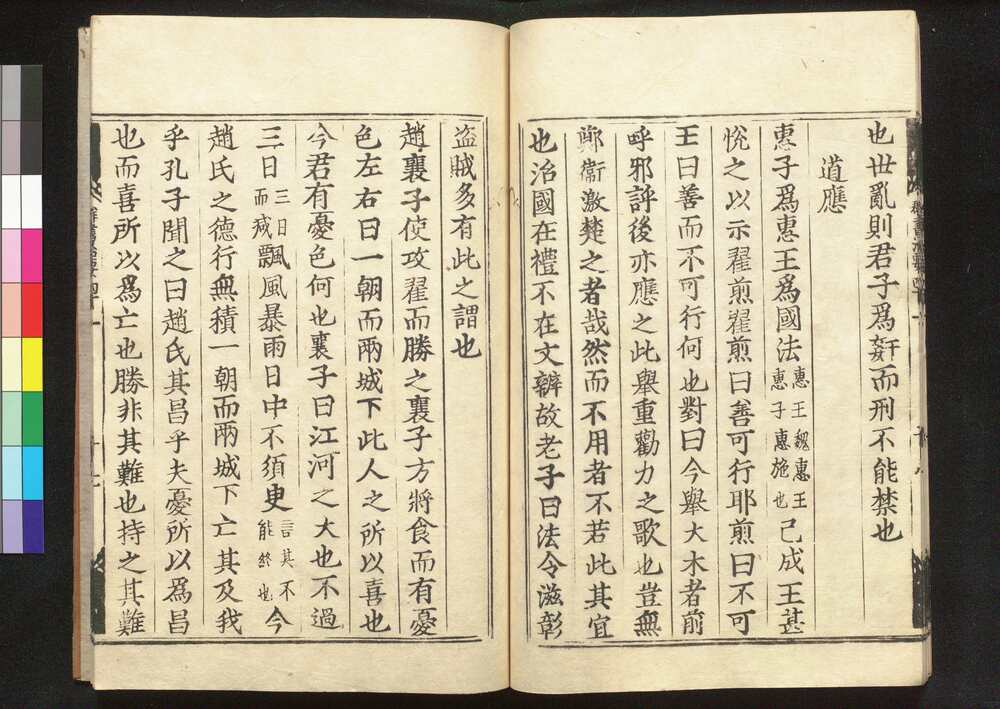 也世亂則君子爲姧而刑不能禁也
道應
惠子爲惠王爲國法惠王魏惠王惠子惠施也已成王甚
悅之以示翟煎翟煎曰善可行耶煎曰不可
王曰善而不可行何也對曰今舉大木者前
呼邪許後亦應之此舉重勸力之歌也豈無
鄭衞激楚之者哉然而不用者不若此其宜
也治國在禮不在文辨故老子曰法令滋彰
盗賊多有此之謂也
趙襄子使攻翟而勝之襄子方將食而有憂
色左右曰一朝而兩城下此人之所以喜也
今君有憂色何也襄子曰江河之大也不過
三日三日而减飄風暴雨日中不須臾言其不能終也今
趙氏之德行無積一朝而兩城下亡其及我
乎孔子聞之曰趙氏其昌乎夫憂所以爲昌
也而喜所以爲亡也勝非其難也持之其難